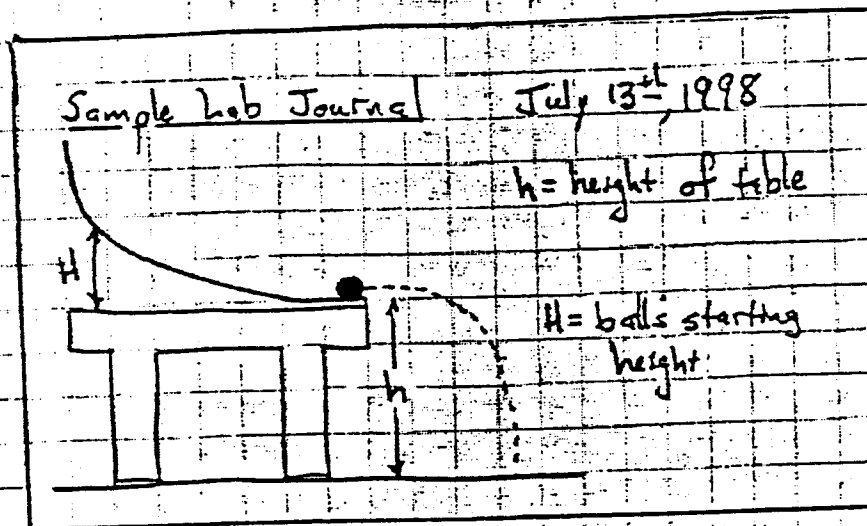 Sample Lab Journal July 13th, 1998
h = height of table
H
H = balls starting
height
h